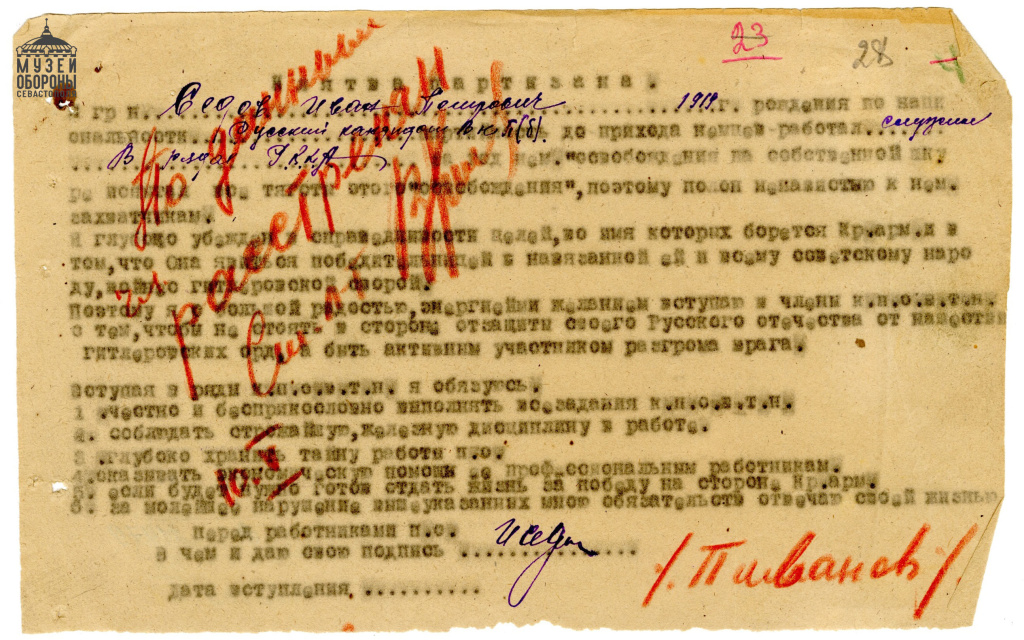 МУЗЕЙ
ОБОРОНЫ
СЕВАСТОПОЛЯ
23
28
4
Клятва партизана.
Я гр н. Седов Иван Петрович 1918 г. рождения по наци
ональности Русский кандидат В.К.П(б). до прихода немцев работал служил
В рядах Р.К.К.А За год нем. "освобождения на собственной шку
ре испытал все тяжести этого "освобождения", поэтому полон ненавистью к нем.
захватчикам.
Я глубоко убежден в справедливости целей, во имя которых борется Кр.арм. и в
том, что Она явиться победительницей в навязанной ей и всему советскому наро
ду, войною гитлеровской сворой.
Поэтому я с большой радостью, энергией и желанием вступаю в члены к.п.о.в.т.н.
с тем, чтобы не стоять в стороне от защиты своего Русского отечества от нашестви
гитлеровских орд, а быть активным участником разгрома врага.
Вступая в ряды к.п.о.в.т.н. я обязуюсь.
1 .честно и бесприкословно выполнять все задания к.п.о.в.т.н.
2. соблюдать строжайшую, железную дисциплину в работе.
3 .глубоко хранить тайну работы п.о.
4. оказывать экономическую помощь ее профессиональным работникам.
5. если будет нужно готов отдать жизнь за победу на стороне Кр.арм.
6. за малейшее нарушение вышеуказанных мною обязательств отвечаю своей жизнью
перед работниками п.о.
в чем и даю свою подпись ИСед
дата вступления
По
расстрелян
10.V
/. Пиванов /.